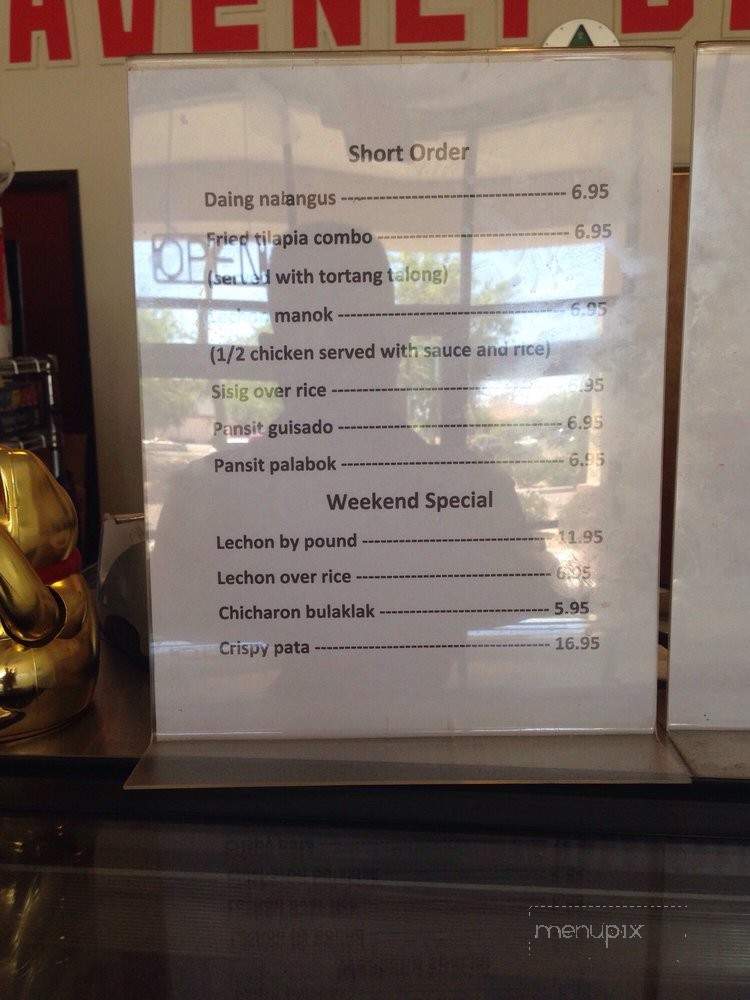 AVENLY
Short Order
Daing nabangus ---------------------------------- 6.95
Fried tilapia combo ----------------------------- 6.95
(served with tortang talong)
manok ---------------------------------- 6.95
(1/2 chicken served with sauce and rice)
Sisig over rice ---------------------------------- 6.95
Pansit guisado ---------------------------------- 6.95
Pansit palabok ---------------------------------- 6.95
Weekend Special
Lechon by pound ----------------------------- 11.95
Lechon over rice ----------------------------- 6.95
Chicharon bulaklak ------------------------- 5.95
Crispy pata ----------------------------------- 16.95
OPEN
menupix